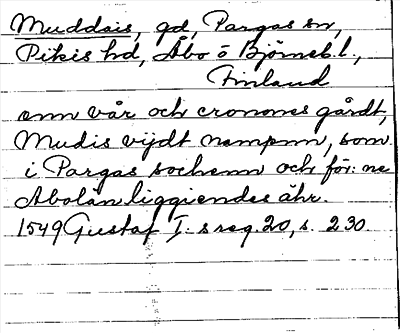 Muddais, gd, Pargas sn,
Pikis hd, Åbo o Björneb. l.,
Finland
enn vår och cronones gårdt,
Mudis vijdt nempnn, som
i Pargas sochenn och för: ne
Abolän liggiendes ähr.
1549 Gustaf I:s reg. 20, s. 230.